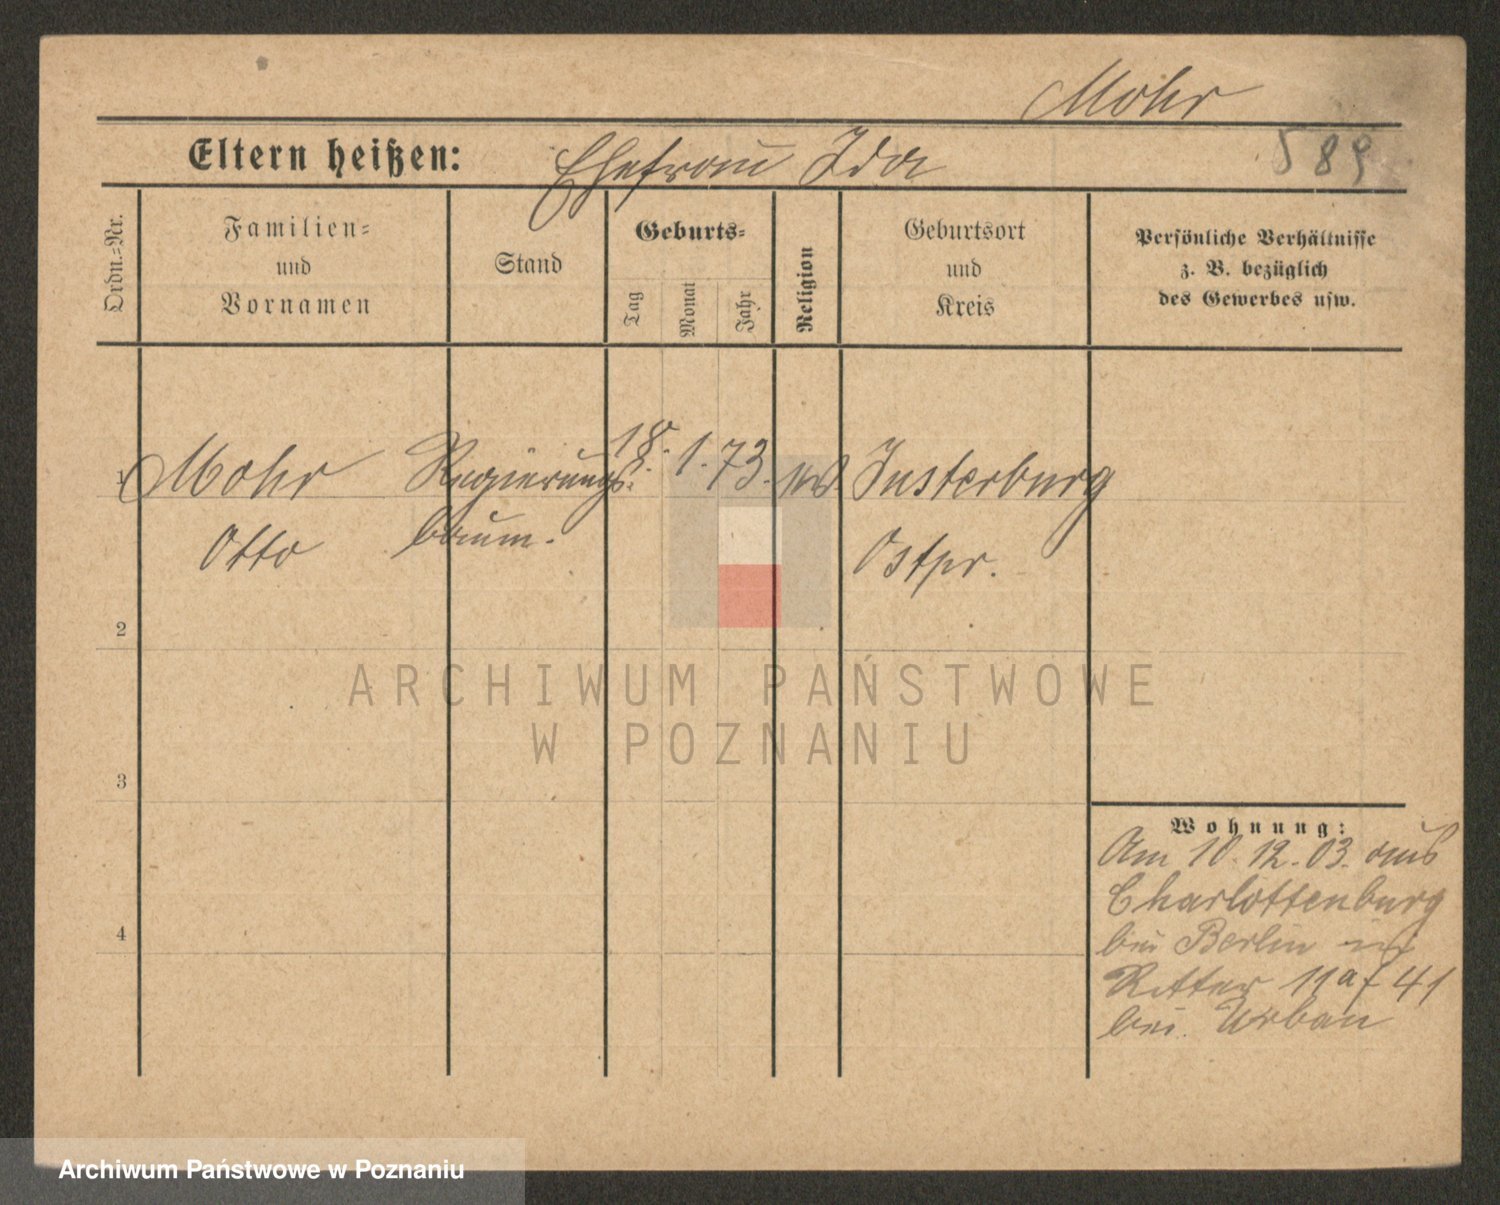 Mohr
589
Eltern heißen: Ehefrau Ida
Ordn.=Nr.
Familien=
und
Vornamen
Stand
Geburts=
Tag
Monat
Jahr
Religion
Geburtsort
und
Kreis
Persönliche Verhältnisse
z. B. bezüglich
des Gewerbes usw.
1 Mohr Regierungs= 18. 1. 73. Insterburg
Otto baum. Ostpr.
2
ARCHIWUM PAŃSTWOWE
W POZNANIU
3
Wohnung:
Am 10.12.03. aus
Charlottenburg
bei Berlin
Ritter 11a 41
bei Urban
4
Archiwum Państwowe w Poznaniu